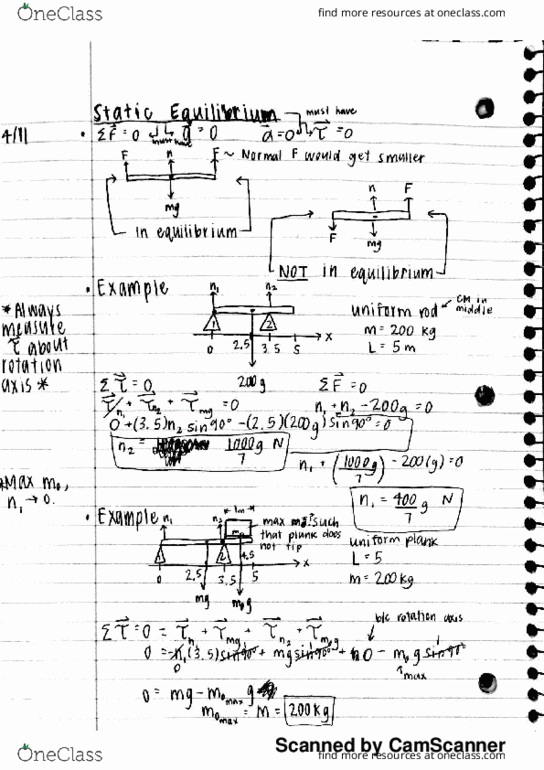 OneClass
find more resources at oneclass.com
Static Equilibrium
must have
4/11
• ΣF⃗ = 0 ↳ a⃗ = 0
must have
α⃗ = 0 ↳ τ⃗ = 0
F n F ~ Normal F would get smaller
mg
In equilibrium
n F
F mg
NOT in equilibrium
• Example
n₁ n₂
1 2
0 2.5 3.5 5 x
200g
uniform rod
CM in middle
m = 200 kg
L = 5m
*Always measure τ⃗ about rotation axis*
Στ⃗ = 0
τ⃗n₁ + τ⃗n₂ + τ⃗mg = 0
0 + (3.5)n₂ sin90° - (2.5)(200g) sin90° = 0
n₂ = 1000g/7 N
ΣF⃗ = 0
n₁ + n₂ - 200g = 0
n₁ + (1000g/7) - 200(g) = 0
n₁ = 400/7 g N
*Max m₀, n₁ → 0.
• Example
n₁ n₂
1m
max m₀? such that plank does not tip
2
0 2.5 3.5 4.5 5 x
mg m₀g
uniform plank
L = 5
m = 200kg
b/c rotation axis
Στ⃗ = 0 = τ⃗n₁ + τ⃗mg + τ⃗n₂ + τ⃗m₀g
0 = -n₁(3.5)sin90° + mg sin90° + 0 - m₀g sin90°
0
1
max
0 = mg - m₀max g
m₀max = m = 200kg
Scanned by CamScanner
OneClass
find more resources at oneclass.com